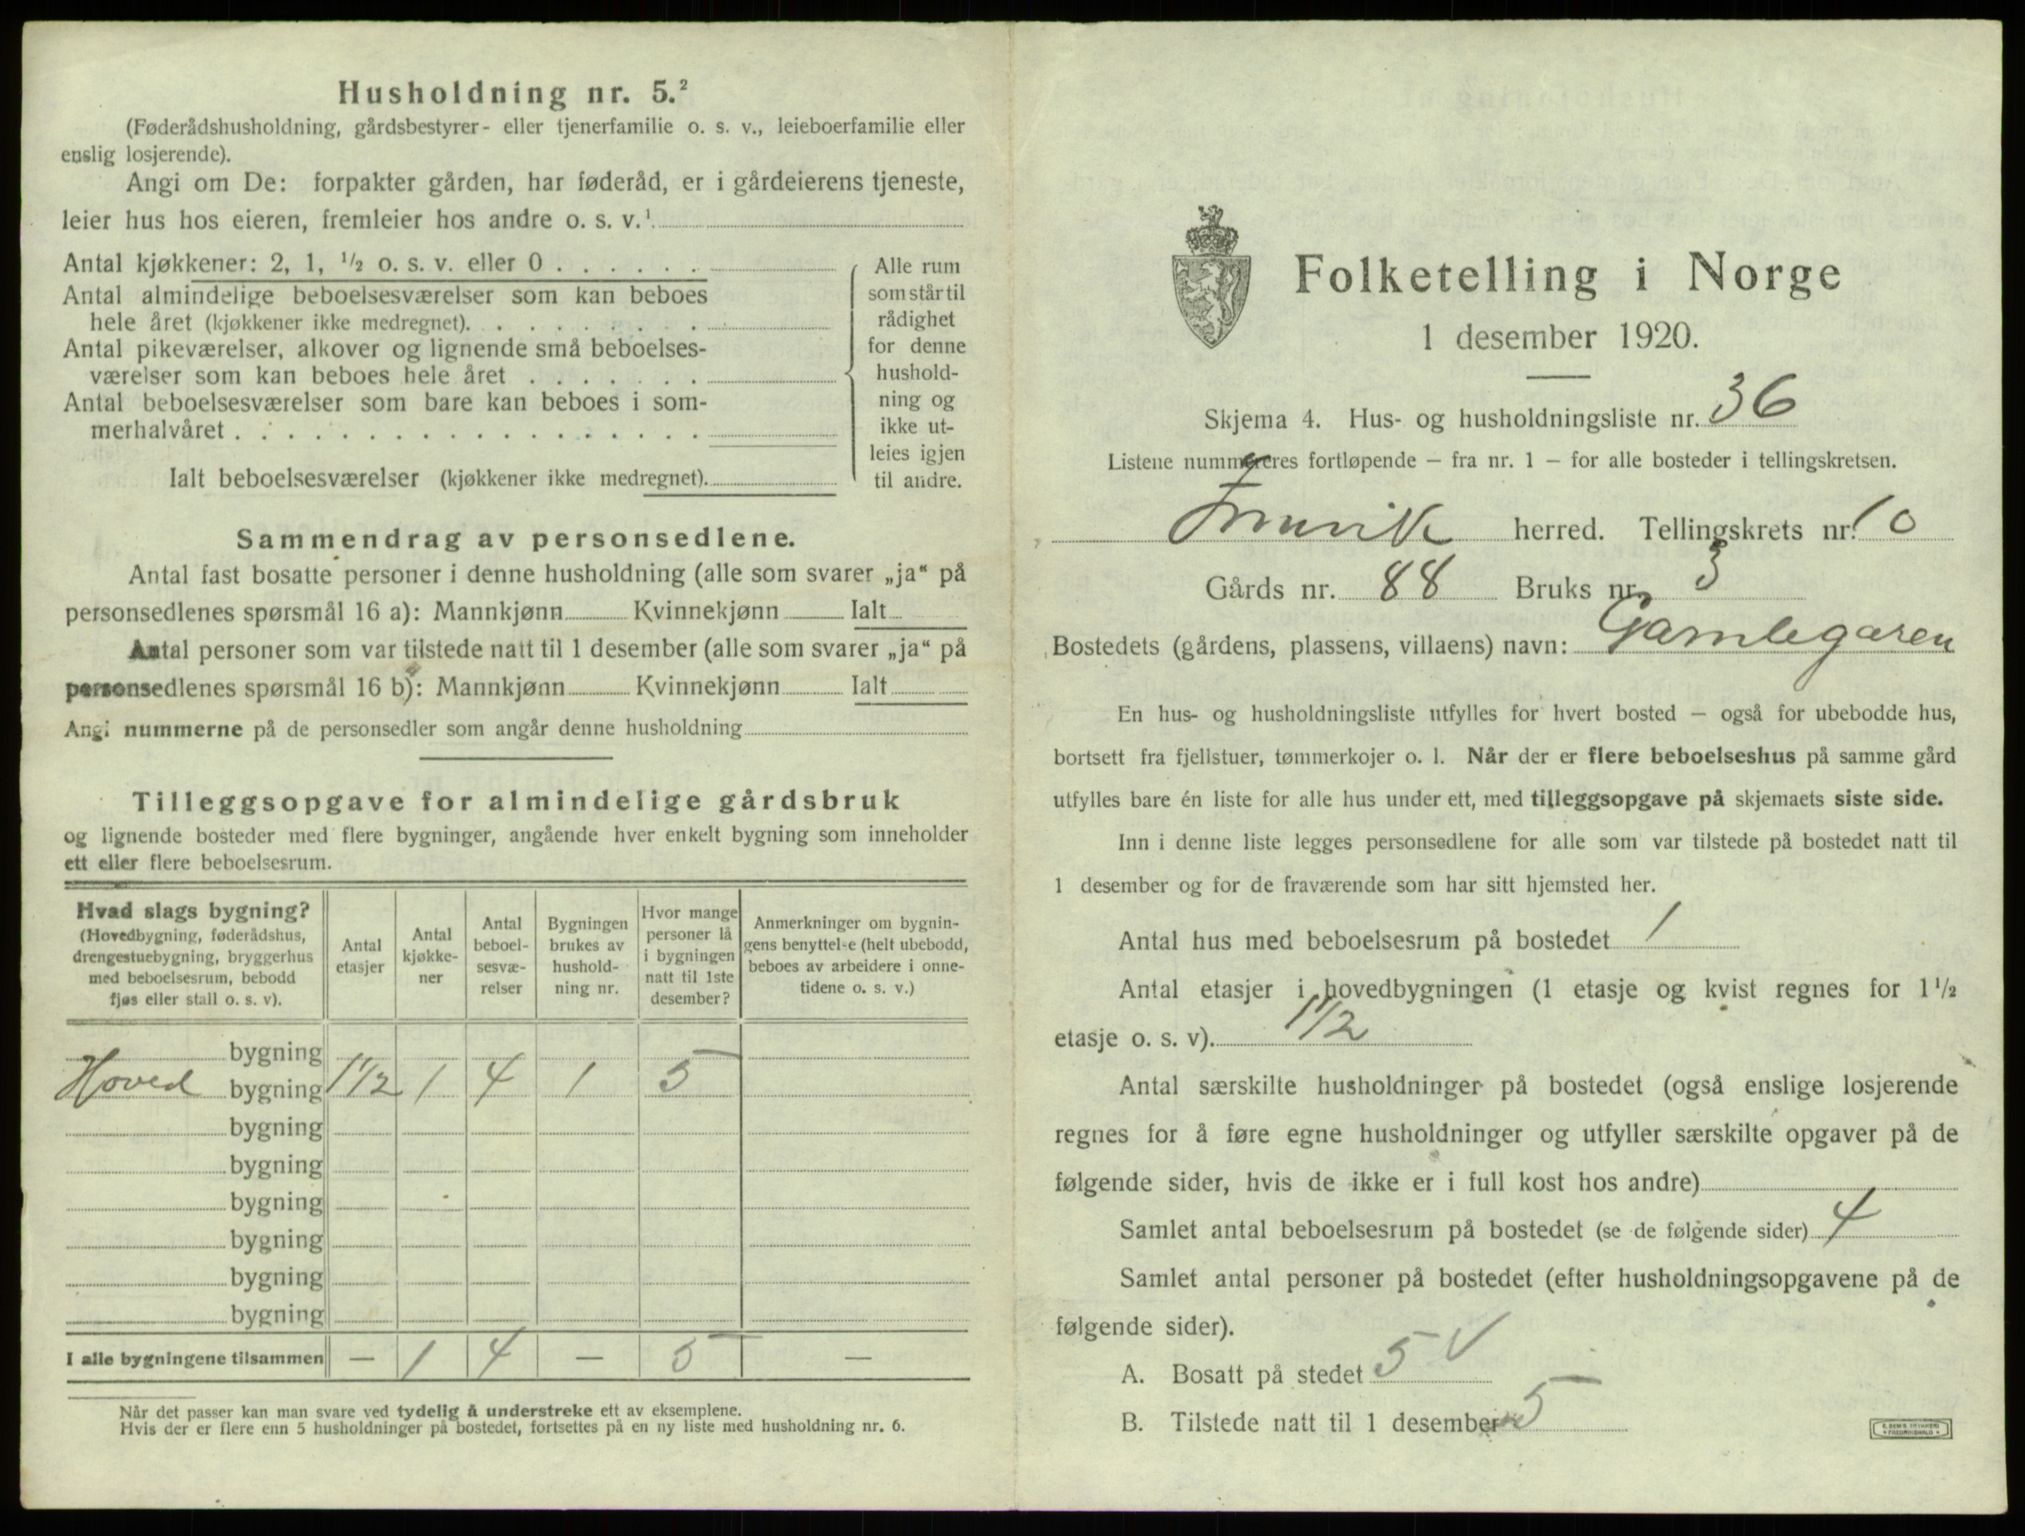 Husholdning nr. 5.²
(Føderådshusholdning, gårdsbestyrer- eller tjenerfamilie o. s. v., leieboerfamilie eller
enslig losjerende).
Angi om De: forpakter gården, har føderåd, er i gårdeierens tjeneste,
leier hus hos eieren, fremleier hos andre o. s. v.¹
Antal kjøkkener: 2, 1, ½ o. s. v. eller 0 . . . . . .
Antal almindelige beboelsesværelser som kan beboes
hele året (kjøkkener ikke medregnet). . . . . . . . .
Antal pikeværelser, alkover og lignende små beboelses-
værelser som kan beboes hele året . . . . . . .
Antal beboelsesværelser som bare kan beboes i som-
merhalvåret . . . . . . . . . . . . . . . . . .
Ialt beboelsesværelser (kjøkkener ikke medregnet).
Alle rum
som står til
rådighet
for denne
hushold-
ning og
ikke ut-
leies igjen
til andre.
Sammendrag av personsedlene.
Antal fast bosatte personer i denne husholdning (alle som svarer „ja“ på
personsedlenes spørsmål 16 a): Mannkjønn Kvinnekjønn Ialt
Antal personer som var tilstede natt til 1 desember (alle som svarer „ja“ på
personsedlenes spørsmål 16 b): Mannkjønn Kvinnekjønn Ialt
Angi nummerne på de personsedler som angår denne husholdning
Tilleggsopgave for almindelige gårdsbruk
og lignende bosteder med flere bygninger, angående hver enkelt bygning som inneholder
ett eller flere beboelsesrum.
Hvad slags bygning?
(Hovedbygning, føderådshus,
drengestuebygning, bryggerhus
med beboelsesrum, bebodd
fjøs eller stall o. s. v).
Antal
etasjer
Antal
kjøkke-
ner
Antal
beboel-
sesvæ-
relser
Bygningen
brukes av
hushold-
ning nr.
Hvor mange
personer lå
i bygningen
natt til 1ste
desember?
Anmerkninger om bygnin-
gens benyttelse (helt ubebodd,
beboes av arbeidere i onne-
tidene o. s. v.)
bygning
Hoved bygning 1½ 1 4 1 5
bygning
bygning
bygning
bygning
bygning
bygning
I alle bygningene tilsammen — 1 4 — 5 —
Når det passer kan man svare ved tydelig å understreke ett av eksemplene.
Hvis der er flere enn 5 husholdninger på bostedet, fortsettes på en ny liste med husholdning nr. 6.
Folketelling i Norge
1 desember 1920.
Skjema 4. Hus- og husholdningsliste nr. 36
Listene nummereres fortløpende – fra nr. 1 – for alle bosteder i tellingskretsen.
herred. Tellingskrets nr. 10
Gårds nr. 88 Bruks nr. 3
Bostedets (gårdens, plassens, villaens) navn: Gamlegaren
En hus- og husholdningsliste utfylles for hvert bosted – også for ubebodde hus,
bortsett fra fjellstuer, tømmerkojer o. l. Når der er flere beboelseshus på samme gård
utfylles bare én liste for alle hus under ett, med tilleggsopgave på skjemaets siste side.
Inn i denne liste legges personsedlene for alle som var tilstede på bostedet natt til
1 desember og for de fraværende som har sitt hjemsted her.
Antal hus med beboelsesrum på bostedet 1
Antal etasjer i hovedbygningen (1 etasje og kvist regnes for 1½
etasje o. s. v). 1½
Antal særskilte husholdninger på bostedet (også enslige losjerende
regnes for å føre egne husholdninger og utfyller særskilte opgaver på de
følgende sider, hvis de ikke er i full kost hos andre)
Samlet antal beboelsesrum på bostedet (se de følgende sider) 4
Samlet antal personer på bostedet (efter husholdningsopgavene på de
følgende sider).
A. Bosatt på stedet 5 V
B. Tilstede natt til 1 desember 5